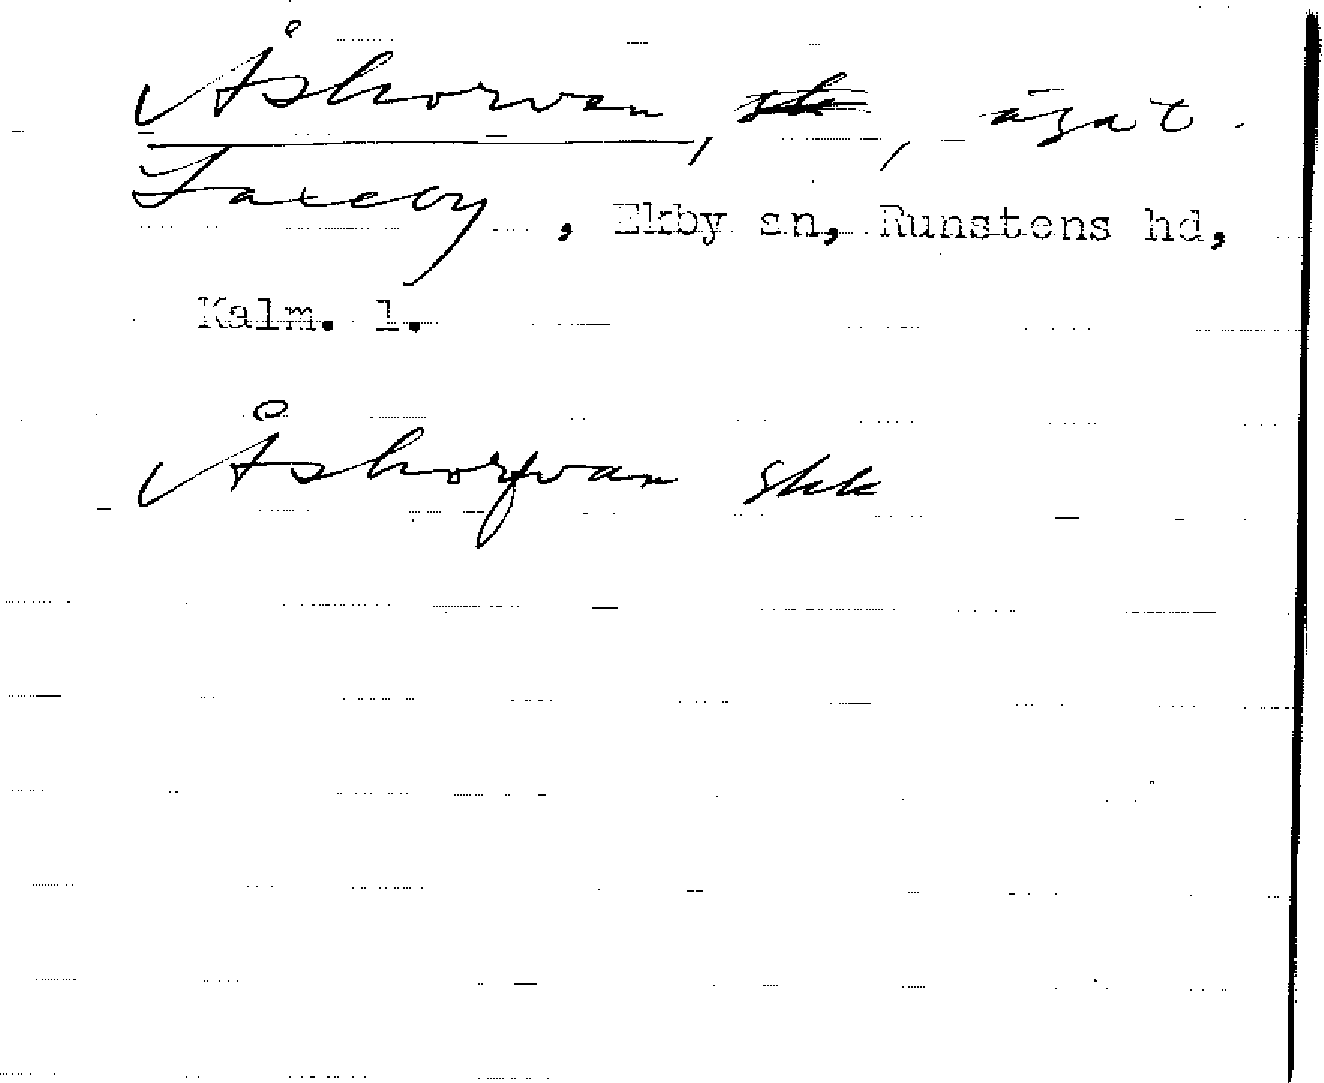 Åskorvan, ~~sk~~, ägat.
Laxeby, Ekby sn, Runstens hd,
Kalm. l.
Åskorfvan skk